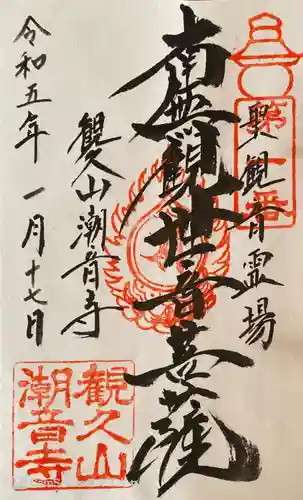 奥観音霊場
第一番
南無観世音菩薩
観久山潮音寺
令和五年 一月十七日
観久山
潮音寺